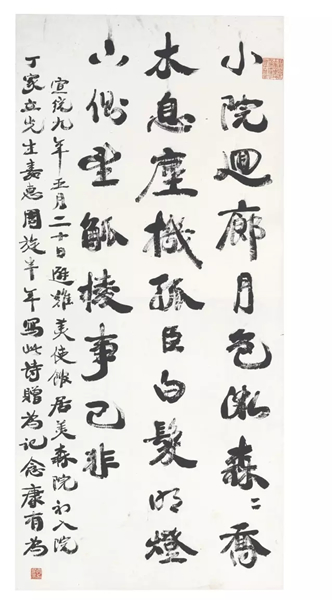 小院迴廊月色微森〻喬
木息塵機孤臣白髮明燈
小側望觚棱事已非
宣統九年五月二十日避難美使館居美森院初入院
丁家立先生嘉惠周旋半年寫此詩贈為記念康有為